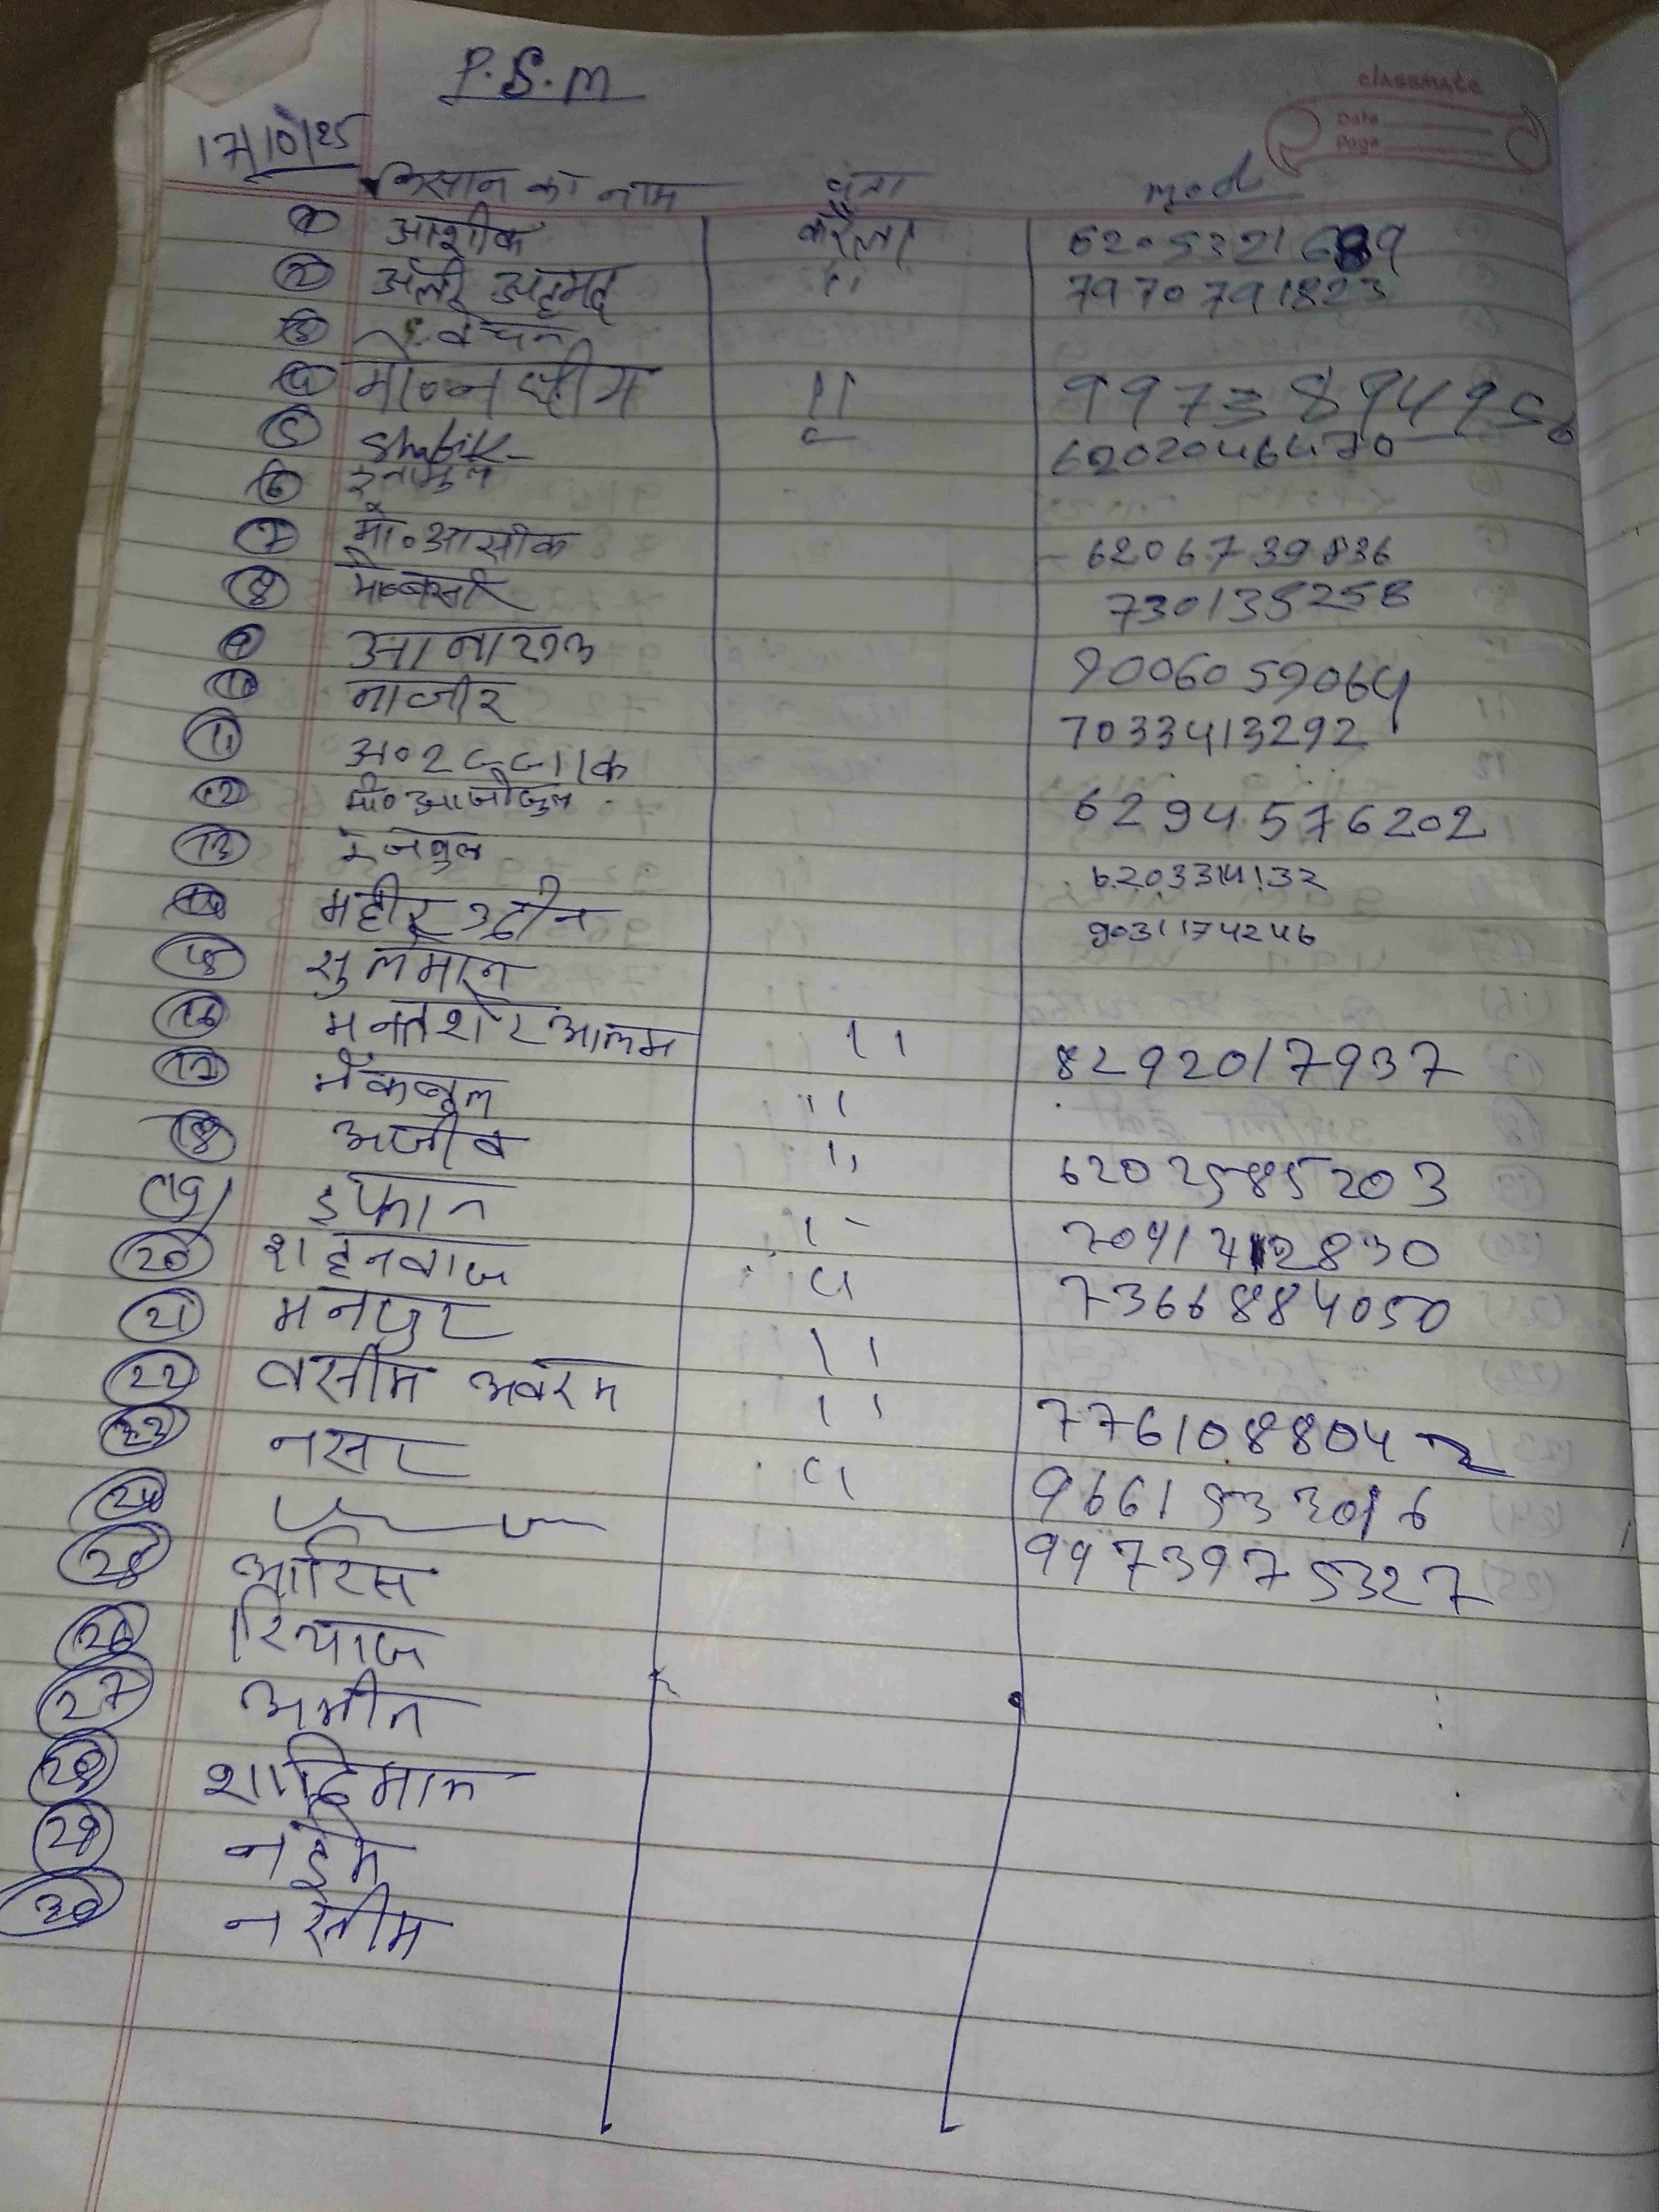 P.S.M
classmate
Date
Page
17/10/25
किसान का नाम पता mod
① आशीक करैला 6205321689
② अली अहमद 11 7970791823
③ बेचन
④ मो०नसीम 11 9973894956
⑤ Shabik 6202046470
⑥ इनामुल
⑦ मो०आसीक 6206739836
⑧ 730135258
⑨
⑩ नाजीर 9006059064
⑪ अ०रज्जाक 7033413292
⑫ मो०आजीजुल 6294576202
⑬ रेजबुल 6203314132
⑭ महीरउद्दीन 9031174246
⑮ सुलेमान
⑯ आलम 11 8292017937
⑰ मैकबूल 11
⑱ अजीब 11 6202585203
⑲ इफान 11 7041712830
⑳ शहनवाज 11 7366884050
㉑ 11
㉒ वसीम अकरम 11 7761088042
㉓ नसर 11 9661533016
㉔ 9973975327
㉕ आरिस
㉖ रियाज
㉗ अमीन
㉘ शादिमान
㉙ नईम
㉚ नसीम